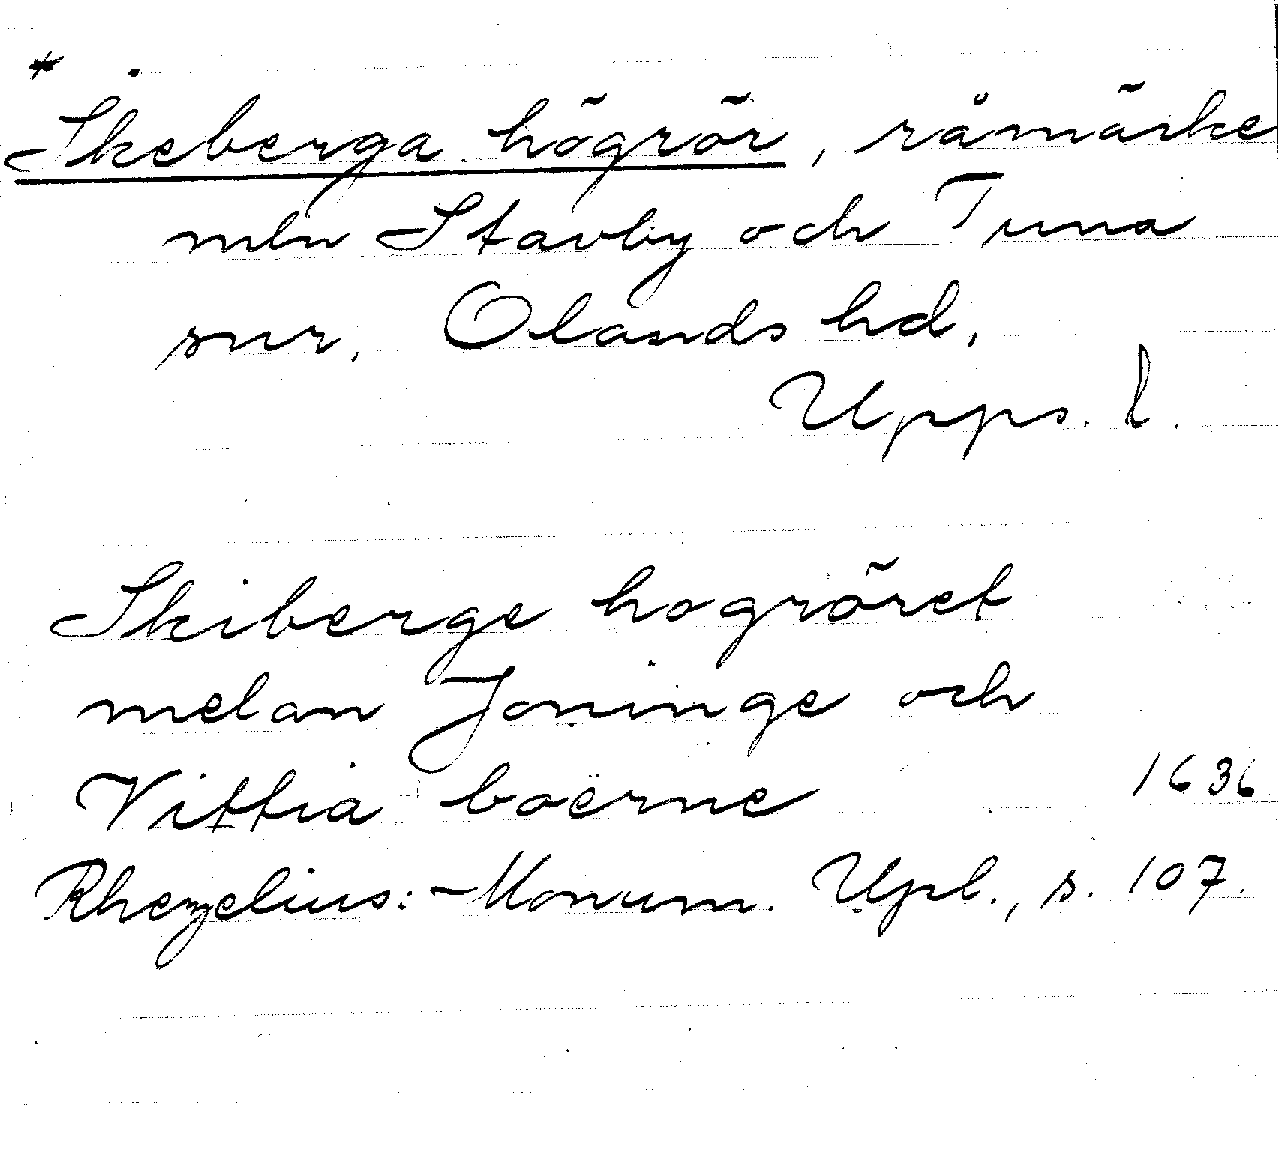 *
Skeberga högrör, råmärke
mln Stavby och Tuna
snr. Olands hd,
Upps. l.
Skiberge hogröret
melan Joninge och
Vittia boërne 1636
Rhezelius: Monum. Upl., s. 107.